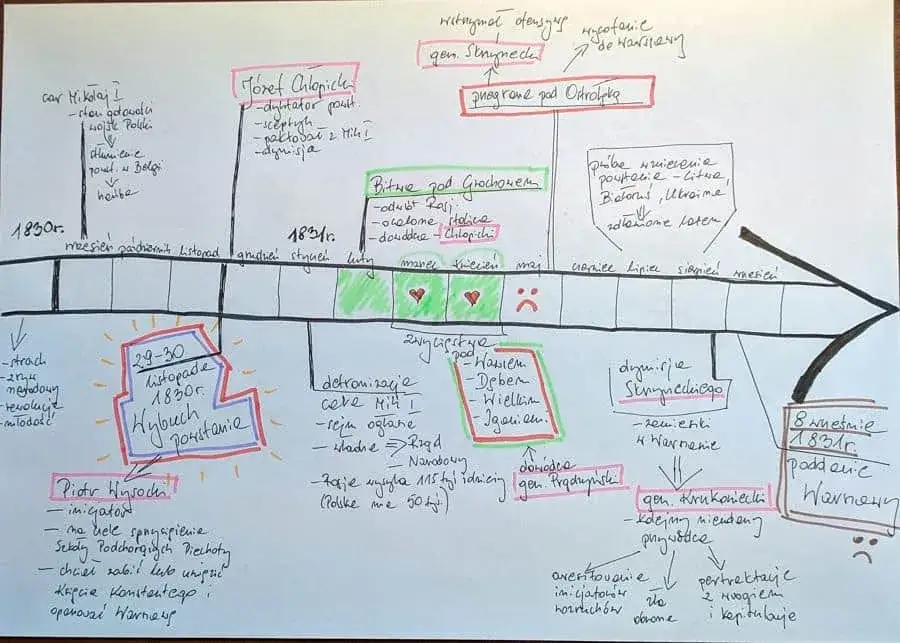 car Mikołaj I
- stan gotowości
wojsk Polski
stłumienie
powst. w Belgi
hańba
Józef Chłopicki
- dyktator powst.
- sceptyk
- paktował z Mik I
- dymisja
wstrzymał ofensywę
gen. Skrzynecki
wycofanie
do Warszawy
przegrana pod Ostrołęką
Bitwa pod Grochowem
- odwrót Rosji
- ocalona stolica
- dowódca - Chłopicki
próba wzniecenia
powstania - Litwa
Białoruś, Ukraina
zdławione latem
1830r.
1831r.
wrzesień październik listopad grudzień styczeń luty marzec kwiecień maj czerwiec lipiec sierpień wrzesień
- strach
- zryw
narodowy
- rewolucje
- młodość
29-30
listopada
1830r.
Wybuch
powstania
Piotr Wysocki
- inicjator
- na czele sprzysiężenia
Szkoły Podchorążych Piechoty
- chciał zabić lub uwięzić
Księcia Konstantego i
opanować Warszawę
detronizacja
cara Mik I
- sejm ogłasza
- władza Rząd
Narodowy
- Rosja wysyła 115 tyś żołnierzy
(Polska ma 50 tyś)
zwycięstwa
pod
- Wawrem
- Dębem
- Wielkim
- Iganiami
dowódca
gen. Prądzyński
dymisja
Skrzyneckiego
- zamieszki
w Warszawie
gen. Krukowiecki
- kolejny nieudany
przywódca
aresztowanie
inicjatorów
rozruchów
zła
obrona
pertraktacje
z wrogiem
i kapitulacje
8 września
1831r.
poddanie
Warszawy